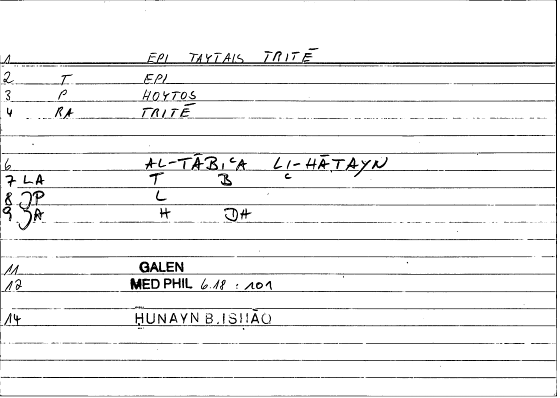 1 EPI TAYTAIS TRITĒ
2 T EPI
3 P HOYTOS
4 RA TRITĒ
6 AL-TĀBIᶜA LI-HĀTAYN
7 LA T B ᶜ
8 P L
9 A H DH
11 GALEN
12 MED PHIL 6.18 : 101
14 ḤUNAYN B. ISḤĀQ